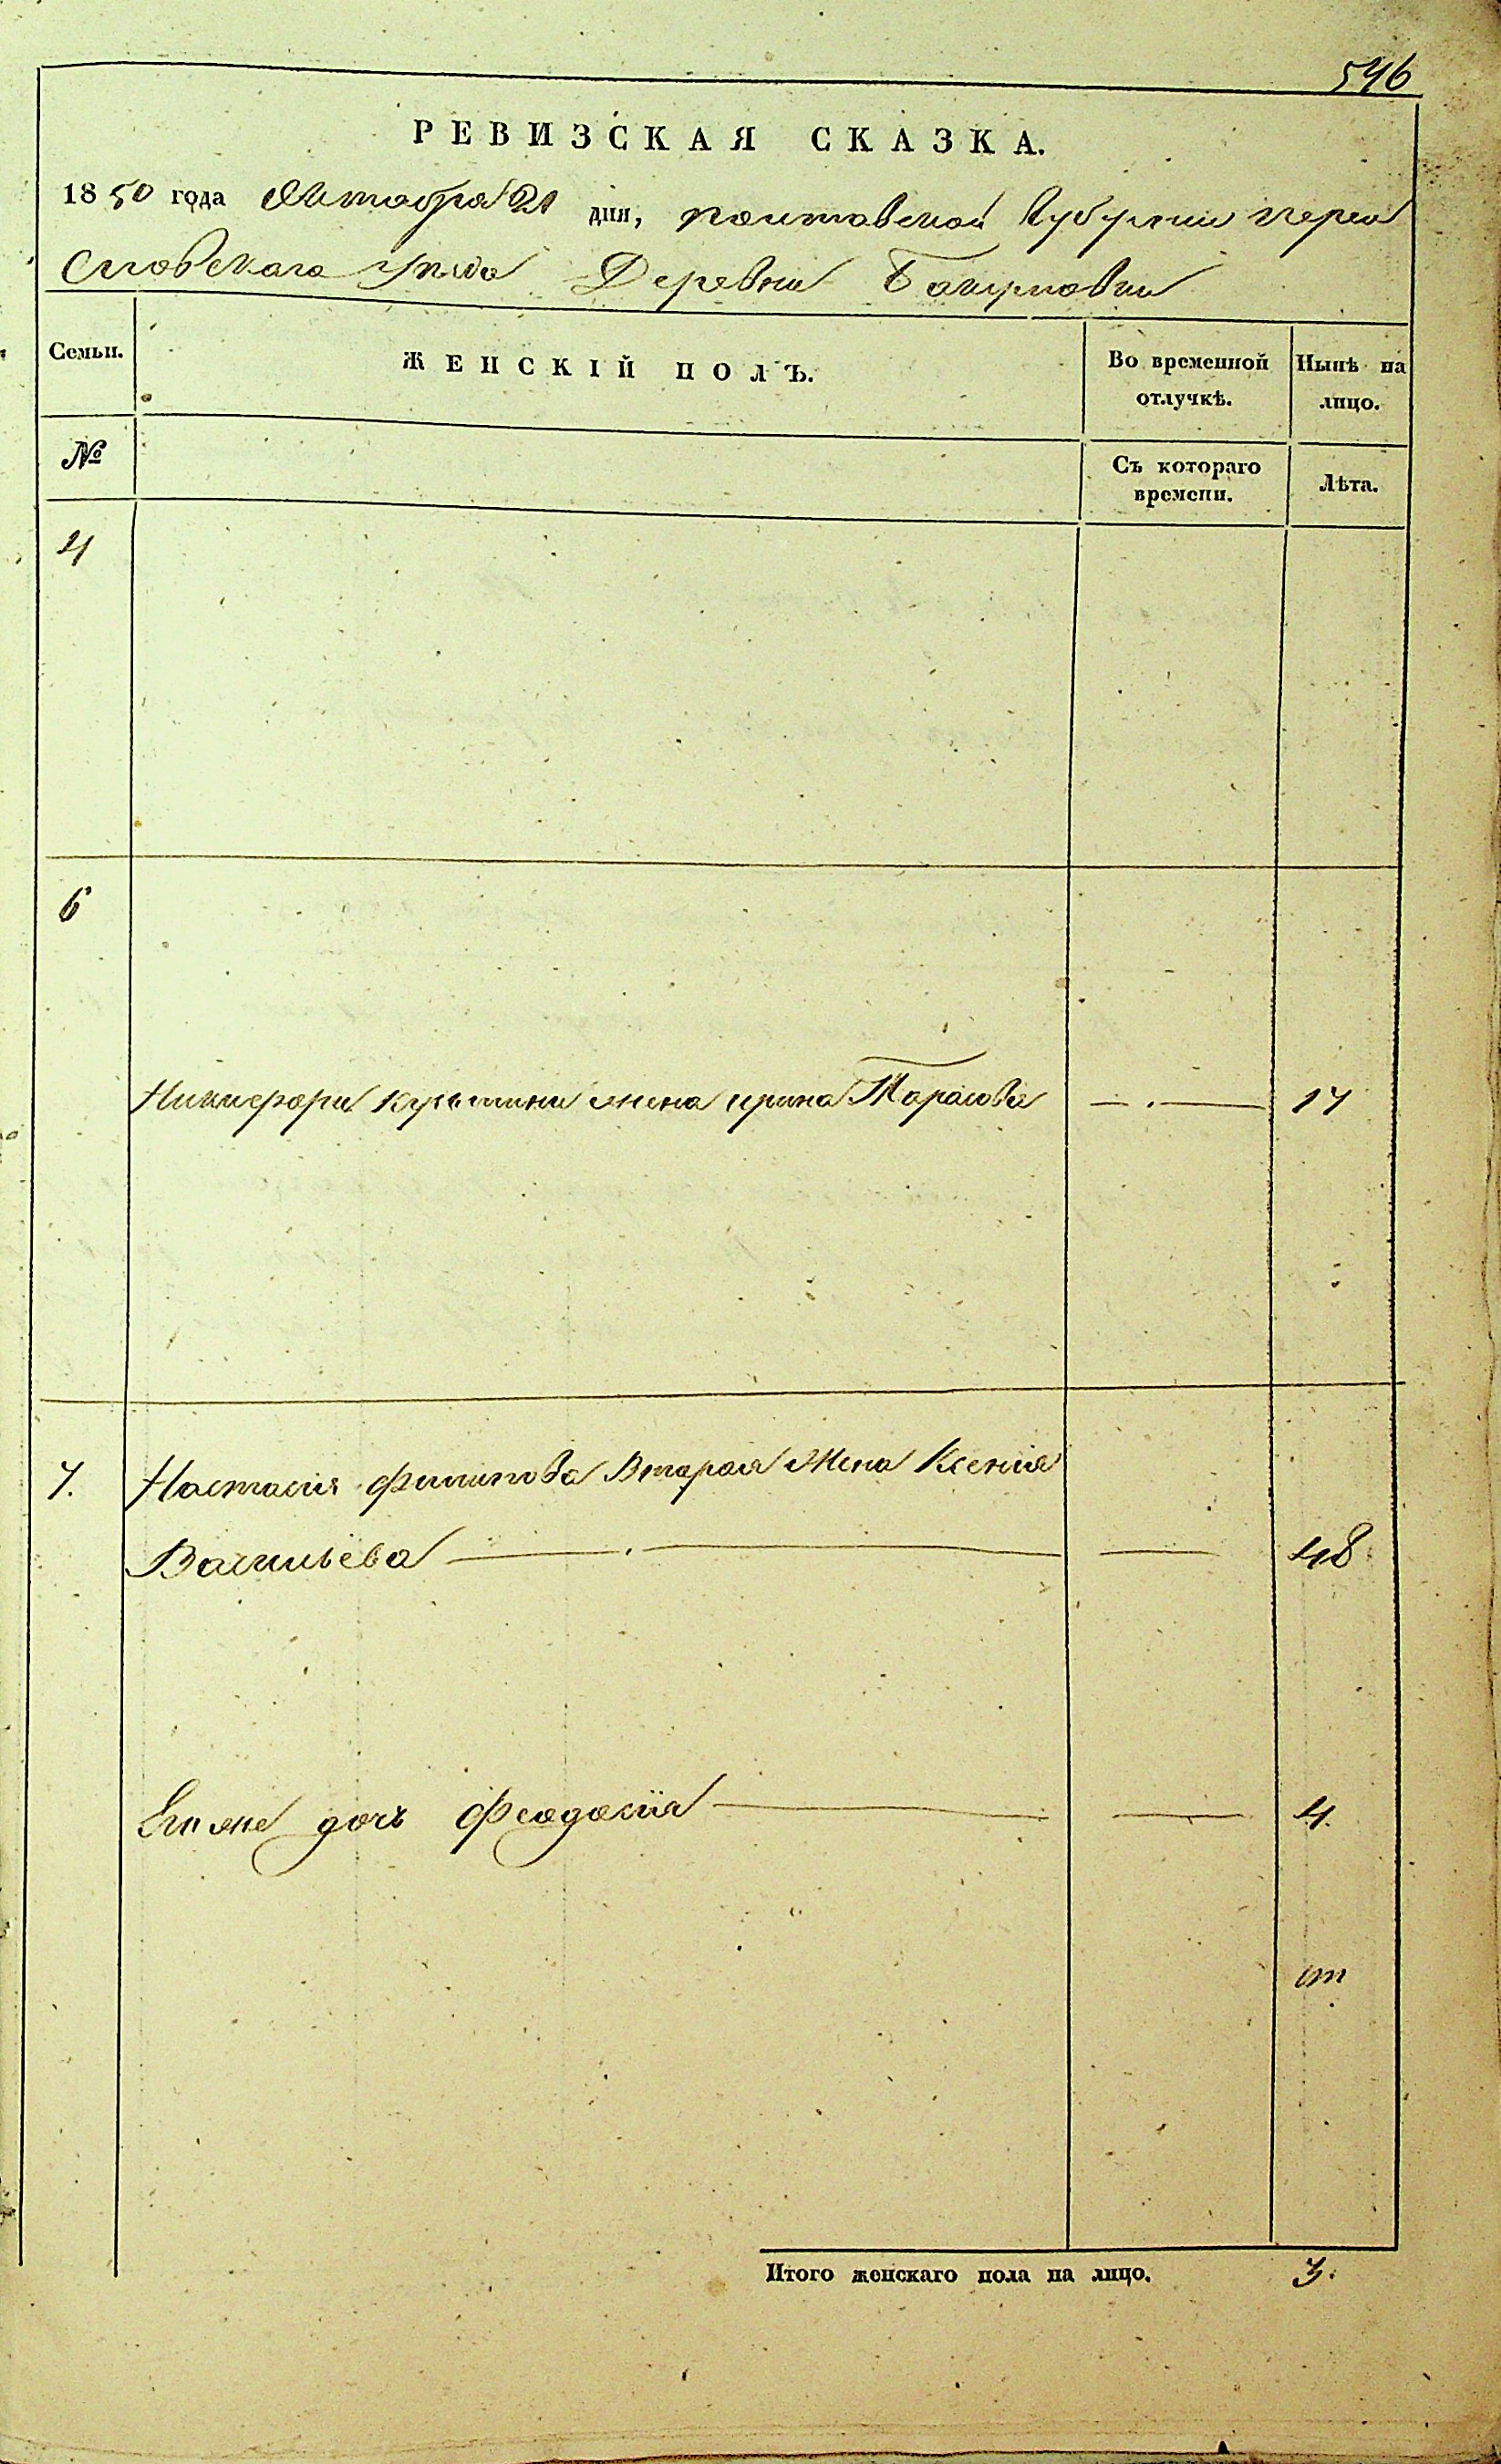 546
РЕВИЗСКАЯ СКАЗКА.
1850 года Октабра 21 дня, полтавской Губернии перея
Словскаго уезда Деревни
Семьи.
ЖЕНСКІЙ ПОЛЪ.
Во временной отлучкѣ.
Нынѣ на лицо.
№
Съ котораго времени.
Лѣта.
4
6
жена ирина Тарасова 17
7. Настасия Филипова Вторая Жена Ксения
Васильева 48
дочъ Феодосия 4
Итого женскаго пола на лицо. 3.